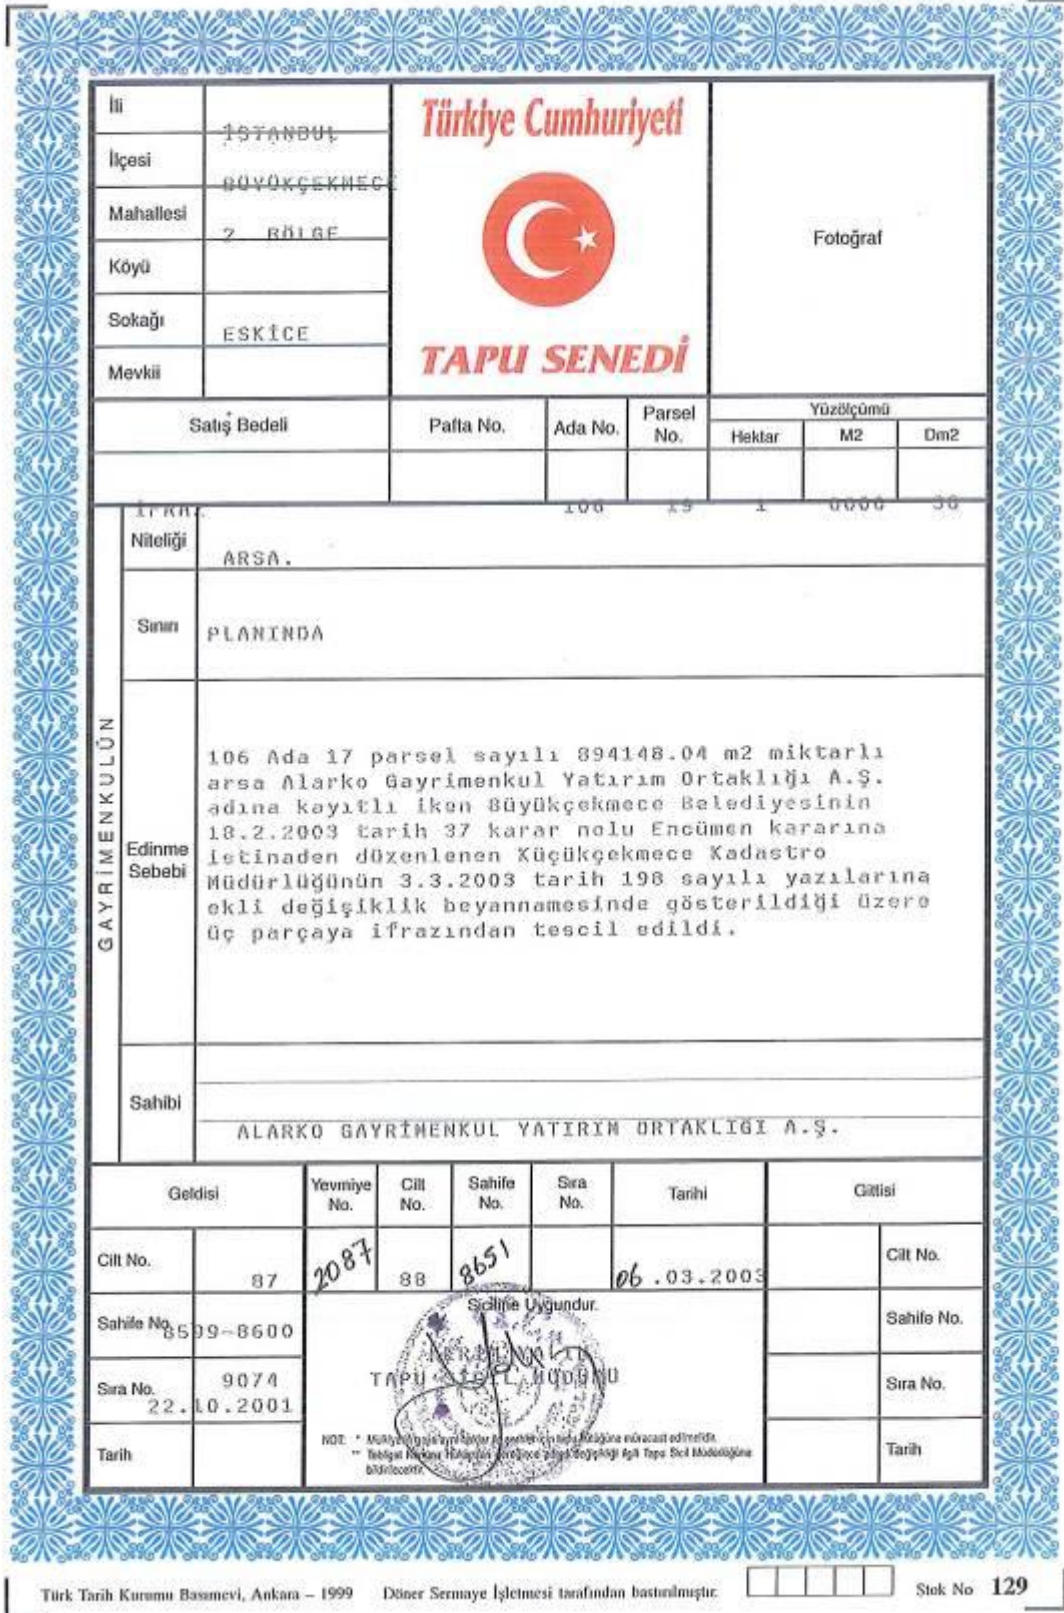 İli
İSTANBUL
Türkiye Cumhuriyeti
İlçesi
BÜYÜKÇEKMECE
Mahallesi
2. BÖLGE
Fotoğraf
Köyü
Sokağı
ESKİCE
TAPU SENEDİ
Mevkii
Satış Bedeli
Pafta No.
Ada No.
Parsel No.
Yüzölçümü
Hektar
M2
Dm2
İFRAZ
106
19
1
0000
Niteliği
ARSA.
Sınırı
PLANINDA
GAYRİMENKULÜN
Edinme Sebebi
106 Ada 17 parsel sayılı 894148.04 m2 miktarlı
arsa Alarko Gayrimenkul Yatırım Ortaklığı A.Ş.
adına kayıtlı iken Büyükçekmece Belediyesinin
18.2.2003 tarih 37 karar nolu Encümen kararına
istinaden düzenlenen Küçükçekmece Kadastro
Müdürlüğünün 3.3.2003 tarih 198 sayılı yazılarına
ekli değişiklik beyannamesinde gösterildiği üzere
üç parçaya ifrazından tescil edildi.
Sahibi
ALARKO GAYRİMENKUL YATIRIM ORTAKLIĞI A.Ş.
Geldisi
Yevmiye No.
Cilt No.
Sahife No.
Sıra No.
Tarihi
Gittisi
Cilt No.
87
2087
88
8651
06.03.2003
Cilt No.
Siciline Uygundur.
Sahife No.
8599-8600
Sahife No.
TAPU SİCİL MÜDÜRÜ
Sıra No.
9074
22.10.2001
Sıra No.
Tarih
NOT: * Mülkiyetin gayri ayni haklar ile şerhler için tapu kütüğüne müracaat edilmelidir.
** Tebligat Kanunu Hükümleri gereğince adres değişikliği ilgili Tapu Sicil Müdürlüğüne
bildirilecektir.
Tarih
Türk Tarih Kurumu Basımevi, Ankara – 1999 Döner Sermaye İşletmesi tarafından bastırılmıştır.
Stok No 129